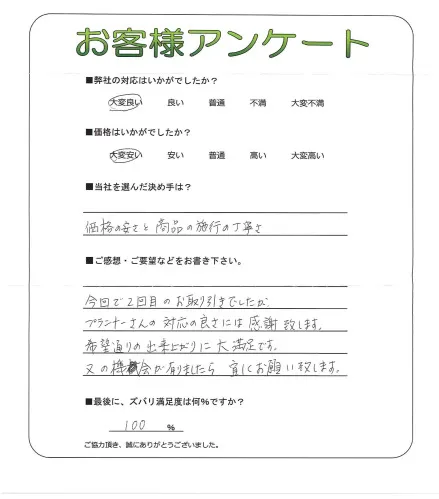 お客様アンケート
■弊社の対応はいかがでしたか?
大変良い 良い 普通 不満 大変不満
■価格はいかがでしたか?
大変安い 安い 普通 高い 大変高い
■当社を選んだ決め手は?
価格の安さと商品の施行の丁寧さ
■ご感想・ご要望などをお書き下さい。
今回で2回目のお取り引きでしたが
プランナーさんの対応の良さには感謝致します。
希望通りの出来上がりに大満足です。
又の機会が有りましたら宜しくお願い致します。
■最後に、ズバリ満足度は何%ですか?
100 %
ご協力頂き、誠にありがとうございました。